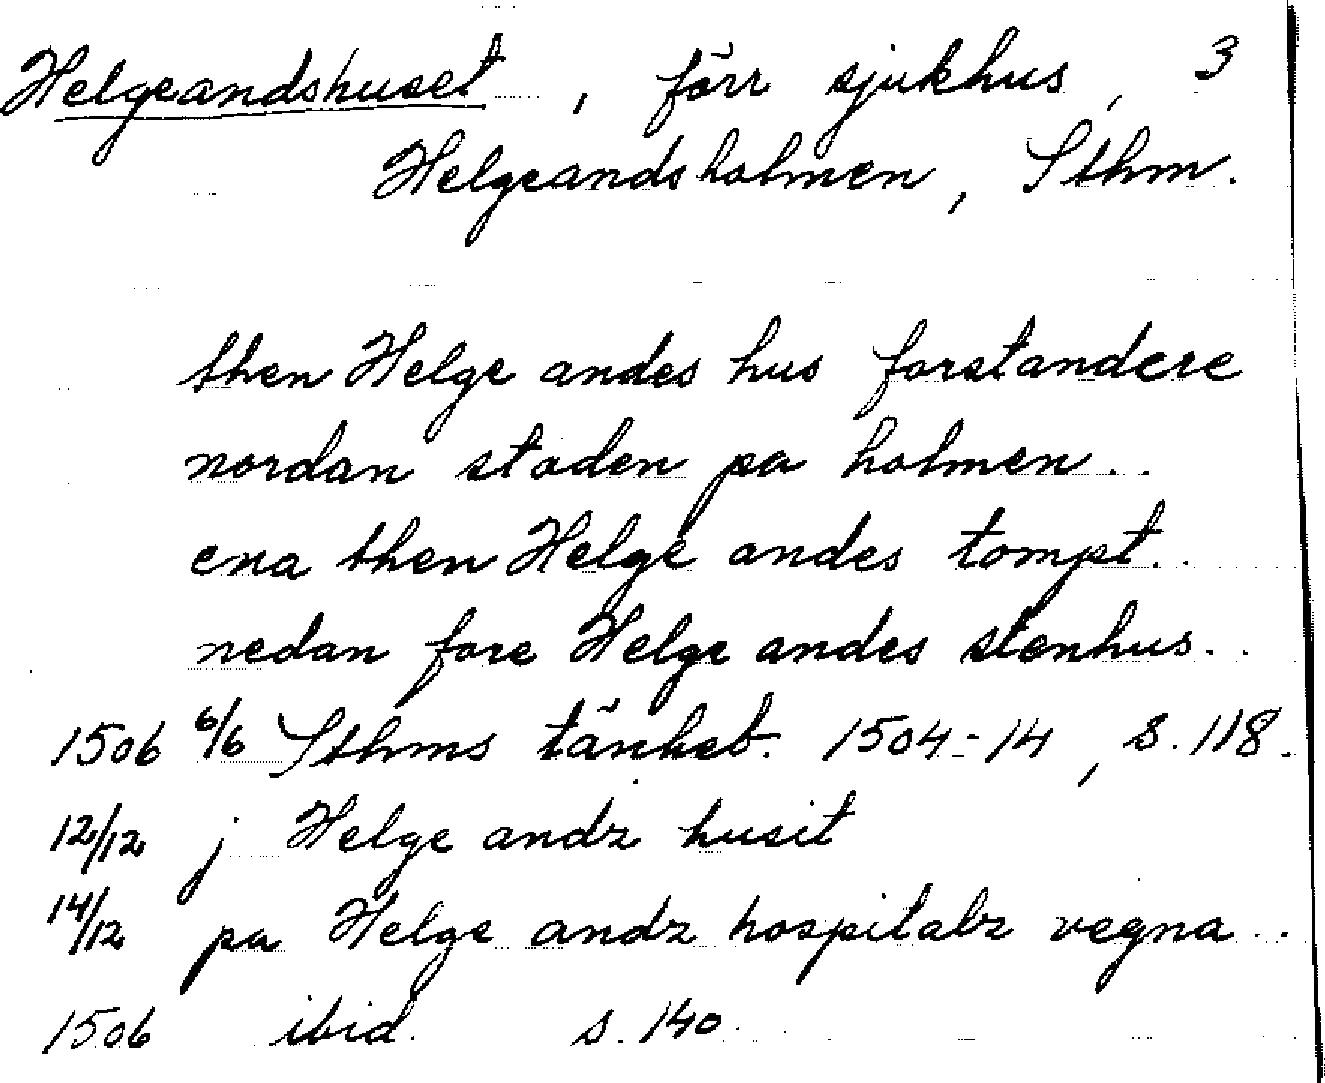 Helgeandshuset, förr sjukhus, 3
Helgeandsholmen, Sthm.
then Helge andes hus forstandere
nordan staden pa holmen..
ena then Helge andes tompt..
nedan fore Helge andes stenhus..
1506 6/6 Sthms tänkeb. 1504-14, s. 118.
12/12 j Helge andz husit
14/12 pa Helge andz hospitalz vegna..
1506 ibid. s. 140.